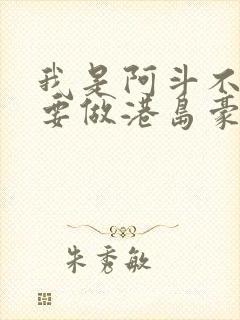 我是阿斗不
要做港岛豪
朱秀敏